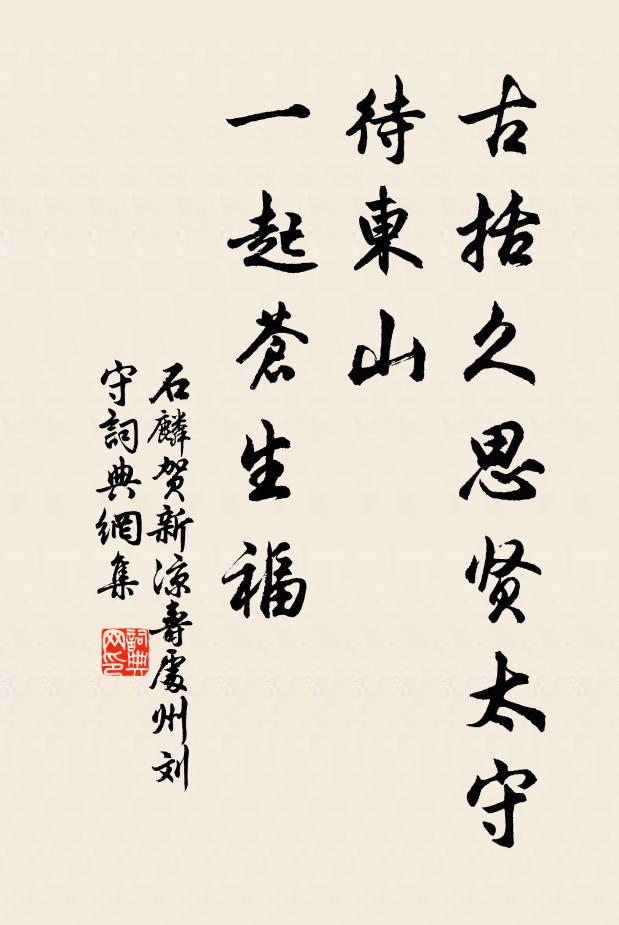 古括久思贤太守
待東山
一起蒼生福
石麟贺新涼壽處州刘
守詞典網集
詞典网印